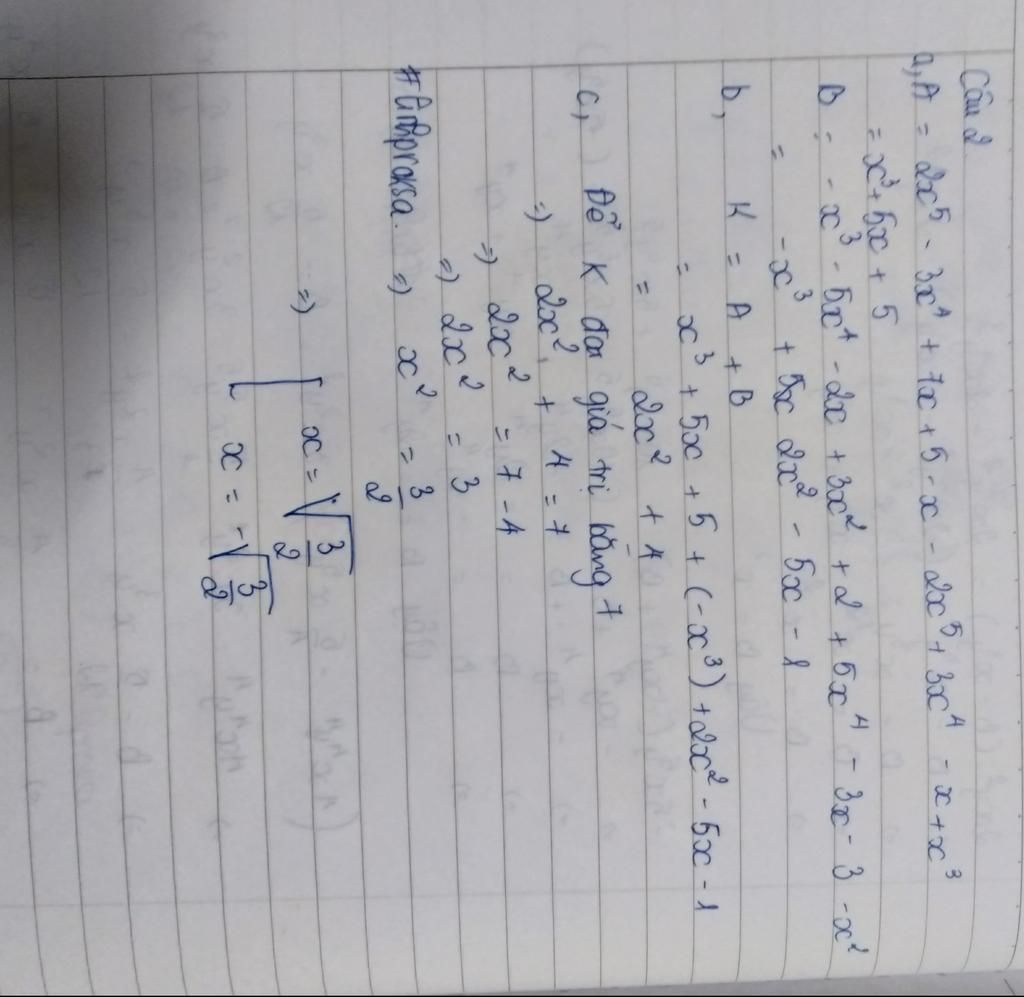 Câu 2
a, A = 2x⁵ - 3x⁴ + 7x + 5 - x - 2x⁵ + 3x⁴ - x + x³
= x³ + 5x + 5
B = - x³ - 5x⁴ - 2x + 3x² + 2 + 5x⁴ - 3x - 3 - x²
= -x³ + 5x 2x² - 5x - 1
b, K = A + B
= x³ + 5x + 5 + (-x³) + 2x² - 5x - 1
= 2x² + 4
c, Để K đa giá trị bằng 7
=) 2x² + 4 = 7
=) 2x² = 7 - 4
=) 2x² = 3
=) x² = 3/2
=) [ x = √3/2
x = -√3/2